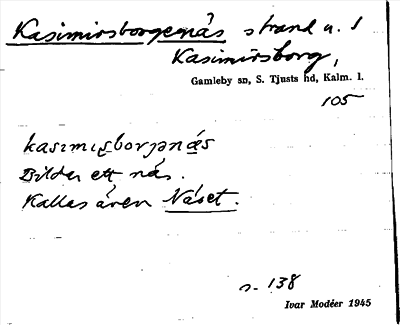 Kasimirsborgsnäs strand u. 1
Kasimirsborg,
Gamleby sn, S. Tjusts hd, Kalm. l.
105
kasımıṣborjənäs
Bildar ett näs.
Kallas även Näset.
s. 138
Ivar Modéer 1945